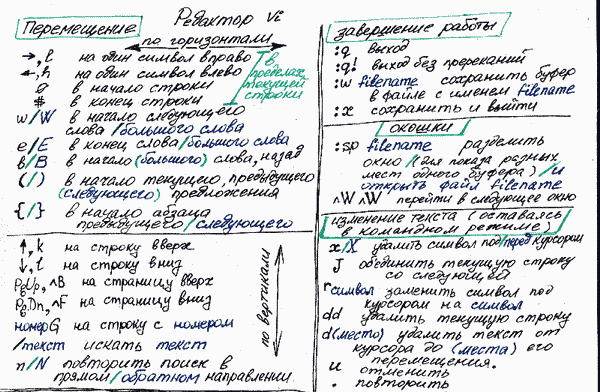 Редактор Vi
Перемещение
по горизонтали
→, l на один символ вправо
←, h на один символ влево
0 в начало строки
# в конец строки
в пределах текущей строки
w/W в начало следующего
слова/большого слова
e/E в конец слова/большого слова
b/B в начало (большого) слова, назад
(/) в начало текущего, предыдущего
(следующего) предложения
{/} в начало абзаца
предыдущего/следующего
↑, k на строку вверх
↓, l на строку вниз
PgUp, ^B на страницу вверх
PgDn, ^F на страницу вниз
номерG на строку с номером
/текст искать текст
n/N повторить поиск в
прямом/обратном направлении
по вертикали
завершение работы
:q выход
:q! выход без пререканий
:w filename сохранить буфер
в файле с именем filename
:x сохранить и выйти
окошки
:sp filename разделить
окно/(для показа разных
мест одного буфера)/и
открыть файл filename
^W ^W перейти в следующее окно
изменение текста (оставаясь
в командном режиме)
x/X удалить символ под/перед курсором
J объединить текущую строку
со следующей
rсимвол заменить символ под
курсором на символ
dd удалить текущую строку
d(место) удалить текст от
курсора до (места) его
перемещения.
u отменить
. повторить